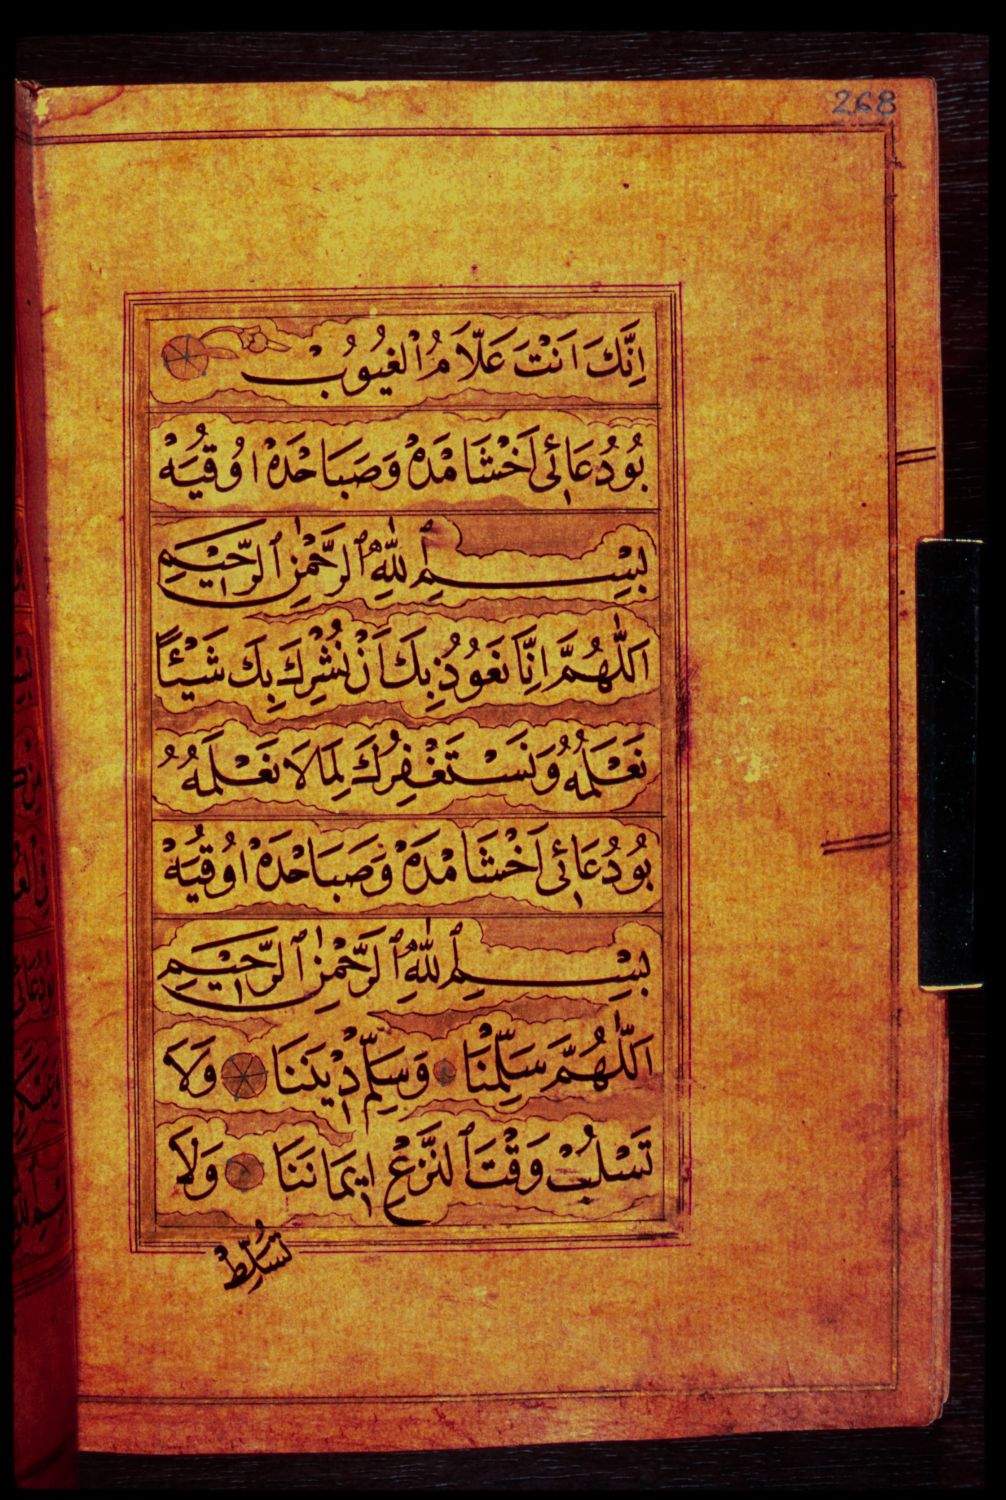 268
اِنَّكَ اَنْتَ عَلَّامُ الْغُيُوبْ
بُو دُعَائِى اَخْشَامْدَهْ وَصَبَاحْدَهْ اوُقُيَهْ
بِسْمِ ٱللّٰهِ ٱلرَّحْمٰنِ ٱلرَّحِيْمِ
اَللّٰهُمَّ اِنَّا نَعُوذُ بِكَ اَنْ نُشْرِكَ بِكَ شَيْئاً
نَعْلَمُهُ وَنَسْتَغْفِرُكَ لِمَا لَا نَعْلَمُهُ
بُو دُعَائِى اَخْشَامْدَهْ وَصَبَاحْدَهْ اوُقُيَهْ
بِسْمِ ٱللّٰهِ ٱلرَّحْمٰنِ ٱلرَّحِيْمِ
اَللّٰهُمَّ سَلِّمْنَا وَسَلِّمْ دِيْنَنَا وَلَا
تَسْلُبْ وَقْتَ ٱلنَّزْعِ اِيمَانَنَا وَلَا
تُسَلِّطْ